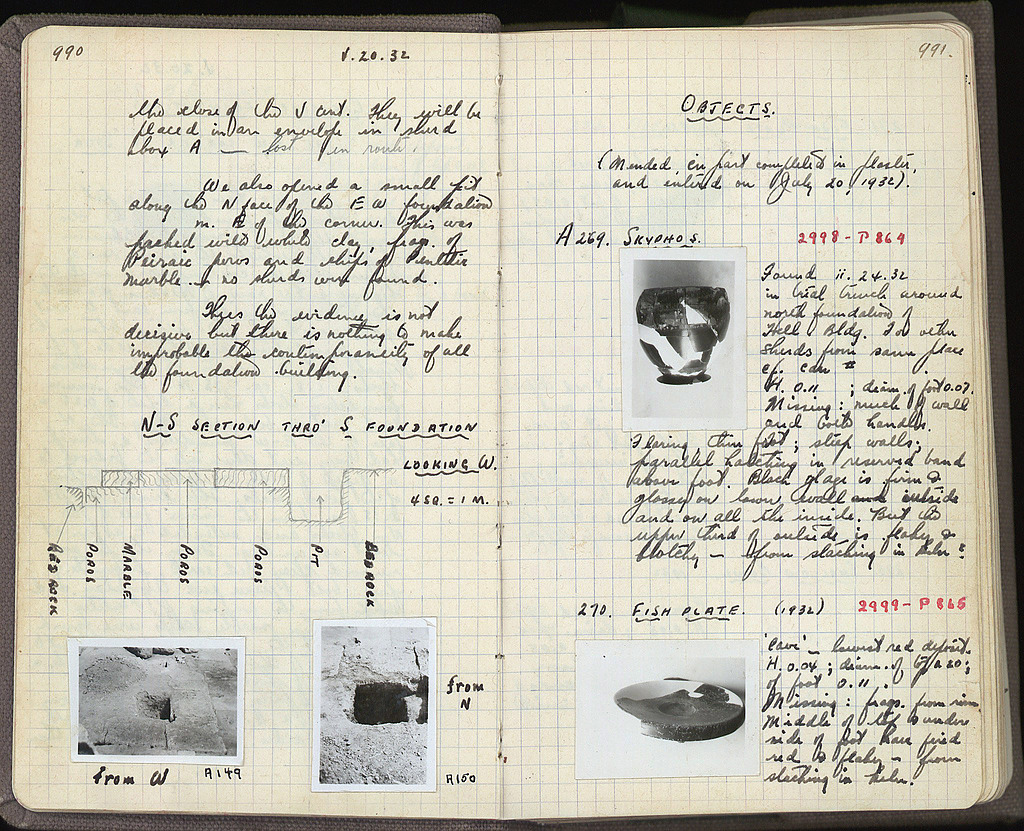 990
V.20.32
the close of the V cent. They will be
placed in an envelope in sherd
box A — lost in route.
We also opened a small pit
along the N face of the E W foundation
m. E of the corner. This was
packed with white clay, frags. of
Peiraic poros and chips of Pentelic
marble. no sherds were found.
Thus the evidence is not
decisive but there is nothing to make
improbable the contemporaneity of all
the foundation building.
N-S SECTION THRO' S FOUNDATION
LOOKING W.
4 SQ. = 1 M.
BEDROCK
POROS
MARBLE
POROS
POROS
PIT
BEDROCK
from W
A149
from
N
A150
991.
OBJECTS.
(Mended, in part completed in plaster,
and entered on July 20, 1932).
A 269. SKYPHOS.
2998 - P 864
Found ii. 24.32
in trial trench around
north foundation of
Hell. Bldg. For other
sherds from same place
cf. can #
H. 0.11 ; diam. of foot 0.07.
Missing: much of wall
and both handles.
Flaring thin foot; steep walls;
parallel hatching in reserved band
above foot. Black glaze is firm &
glossy on lower wall outside
and on all the inside. But the
upper third of outside is flaky &
blotchy — from stacking in kiln?
270. FISH PLATE. (1932)
2999 - P 865
'Cave' — lowest red deposit.
H. 0.04 ; diam. of 0.20 ;
of foot 0.11.
Missing: frags. from rim.
Middle of top & under
side of foot have fired
red & flaky — from
stacking in kiln.